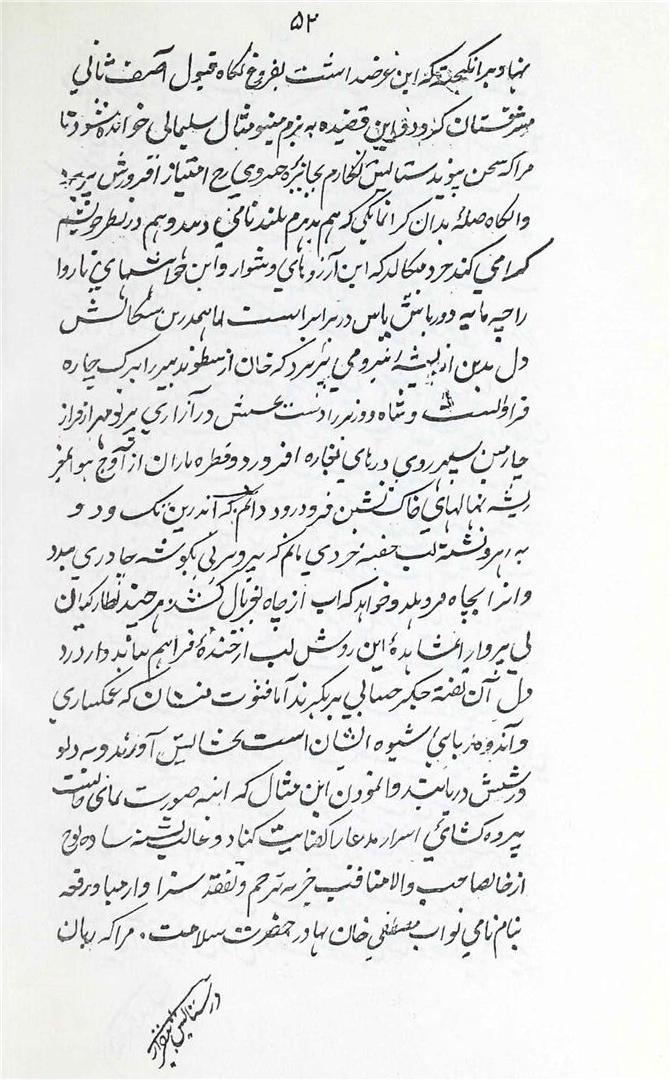 ۵۲
نهاد برانگیخت که این عرضداشت بفروغ نگاه قبول آصف ثانی
مشرقستان گردد و این قصیده به بزم مینو مثال سلیمانی خوانده شود تا
مرا که سخن پیوند ستایش نگارم بجایزهٔ خسروی امتیاز افزایش
وانگاه صلهٔ بدان گرانمایگی که هم بدهرم بلند نامی دهد و هم در نظر خویشم
گرامی کند خرد میسگالد که این آرزوهای دشوار و این خواهشهای ناروا
را چه مایه دورباش یاس در برابر است اما همدرین سگالش
دل بدین اندیشه نیرو می پذیرد که خان ارسطو تدبیر را برگ چاره
فراوانست و شاه دوز را دست بخشش در آزاری پرتو مهر از فراز
چارمین سپهر روی دریای فرود و قطره باران از اوج هوا بمغز
ریشه نهالهای خاک نشین فرو رود دانم که اندرین تگ و دو
به رهرو تشنه لب تفته خردی مانم که پیروزنی بگوشه چادری بندد
و انرا بچاه فرو هلد و خواهد که آب از چاه بغربال کشد هر چند نظارگیان
بی پروا را بمشاهدهٔ این روش لب از خندهٔ فراهم نیاید دارد درد
دل آن تفته جگر حسابی برنگیرند اما فتوت منشان که غمگساری
و اندوه ربائی شیوه ایشان است بخشایش آورند و به دلو
و رسنش دریابند وانمودن این مثال که اینه صورت نمای حالست
پرده کشائی اسرار مدعا را کفایت کناد و غالب تشنه ساده لوح
از خانصاحب والا مناقب جز به ترحم و تفقد سزاوار مباد رقعه
بنام نامی نواب مصطفی خان بهادر حضرت سلامت. مرا که زبان
در ستایش